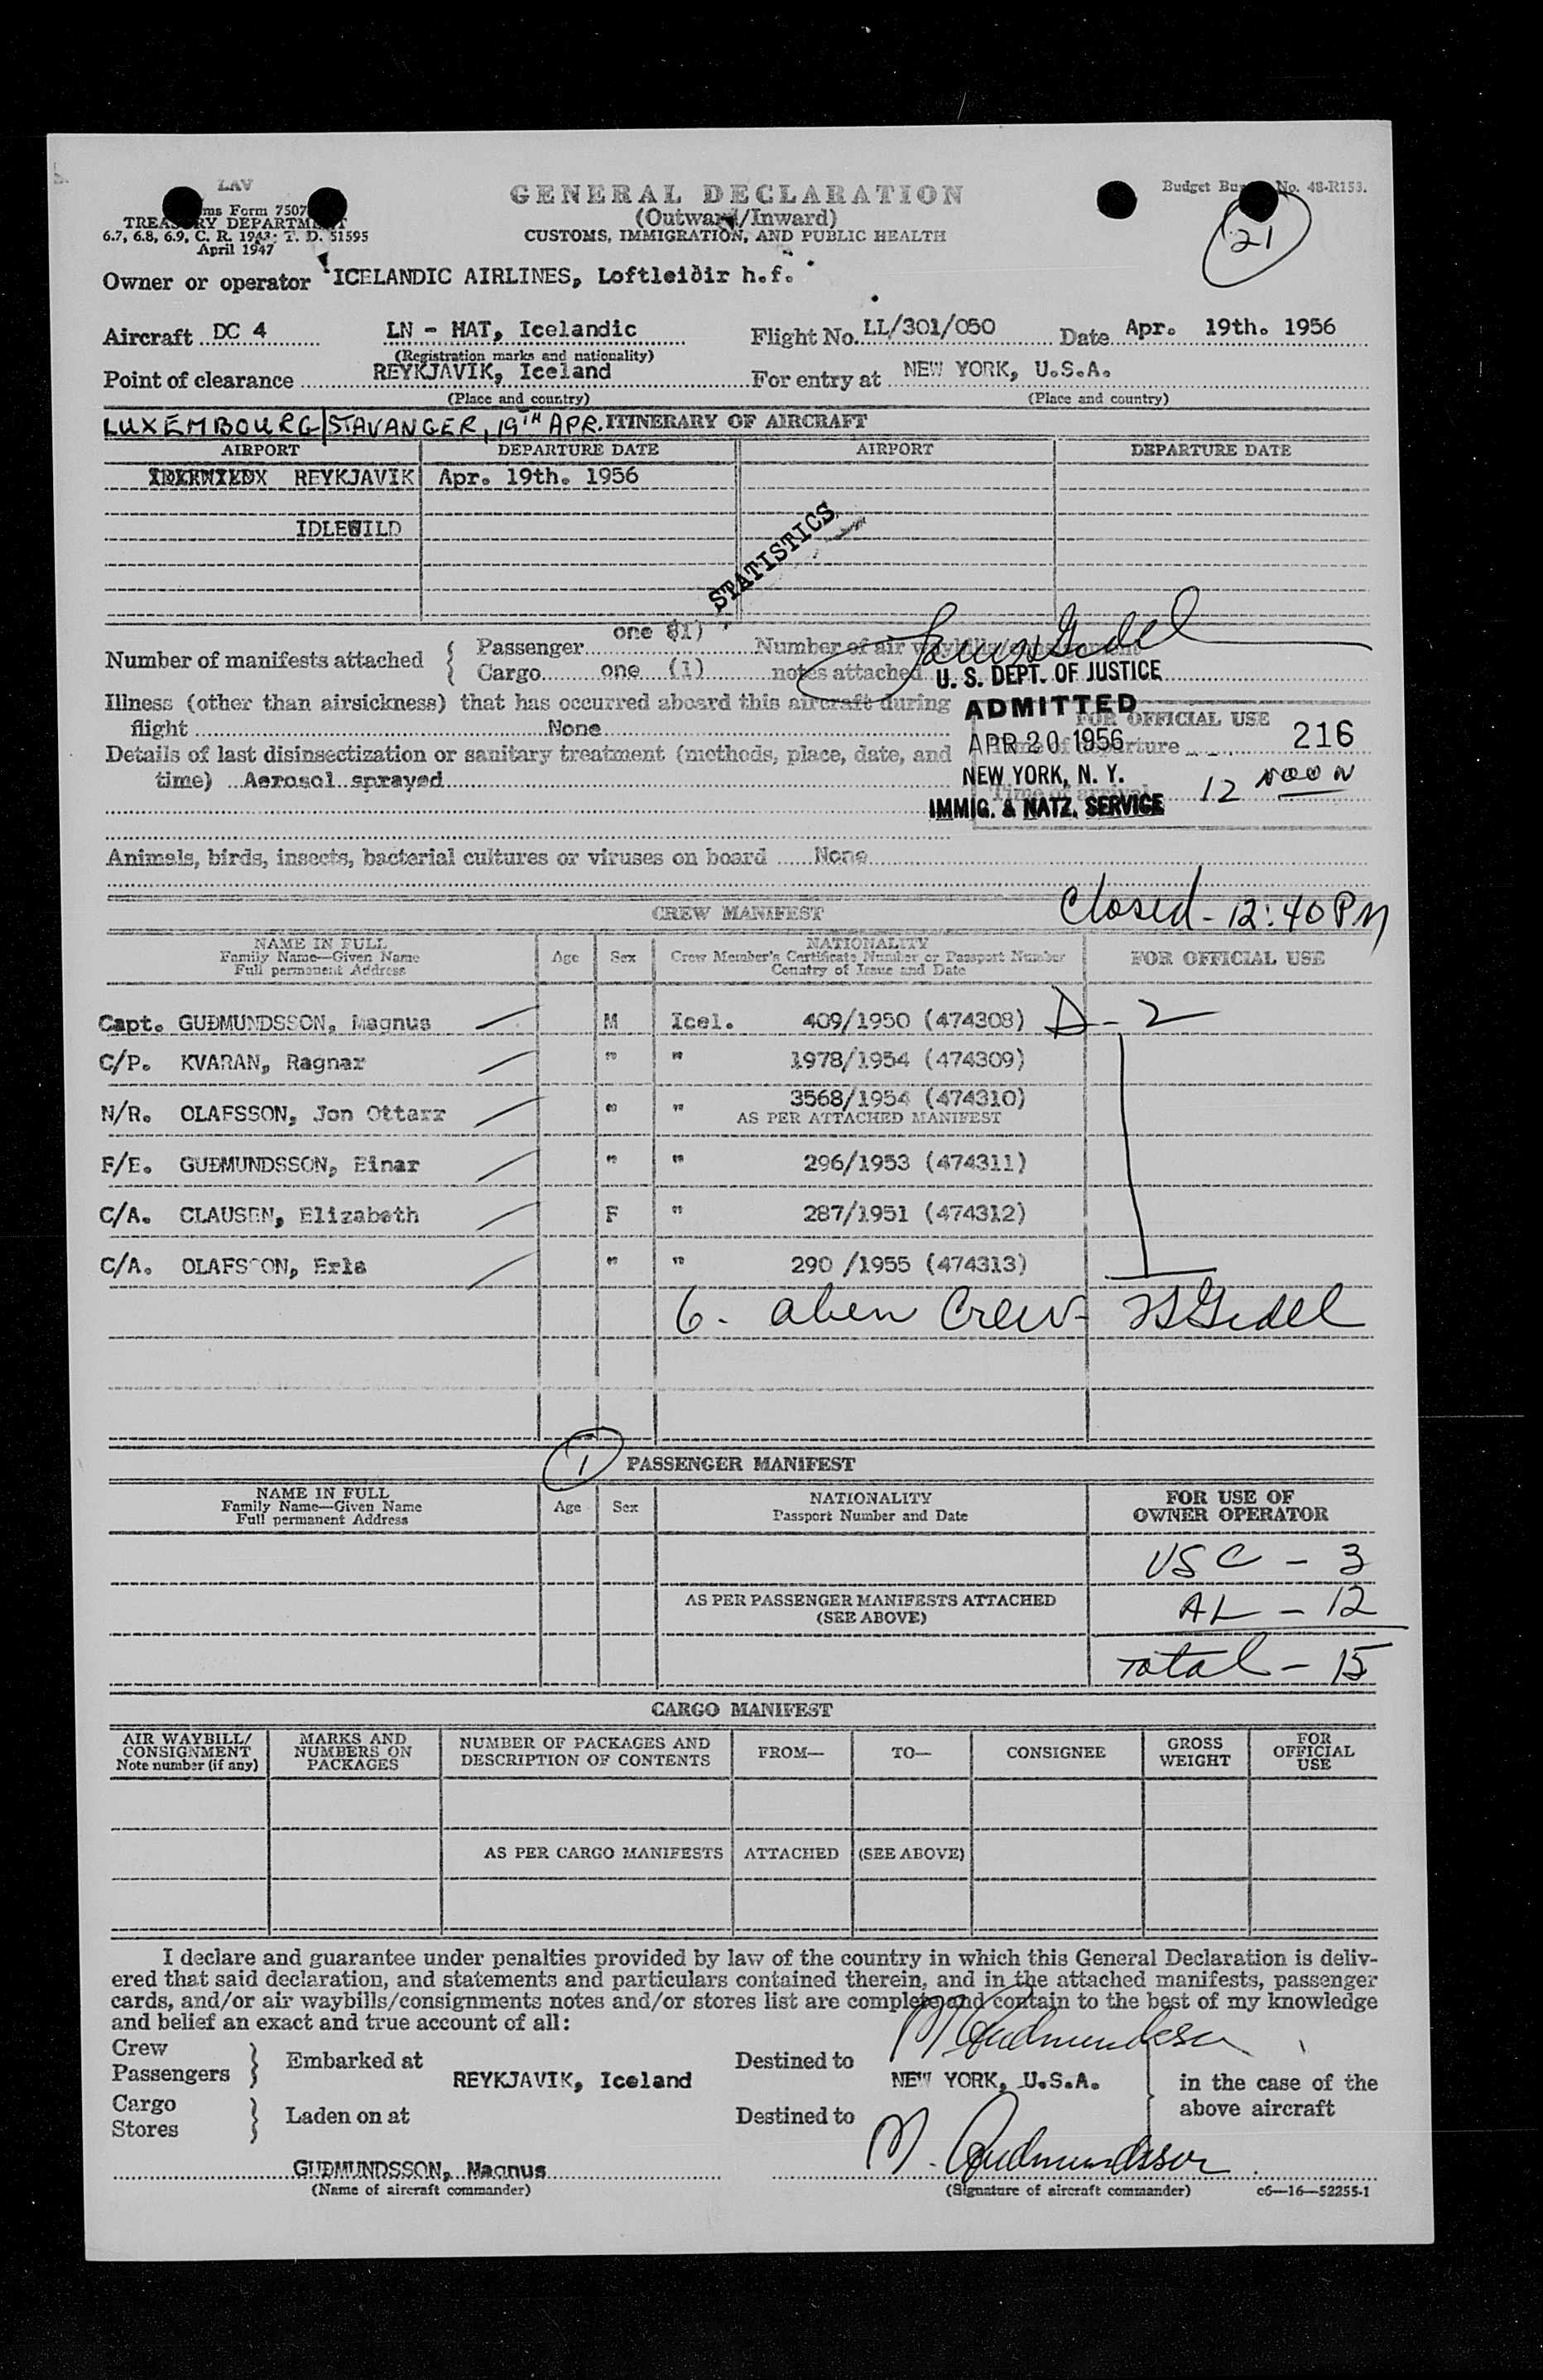 LAV
GENERAL DECLARATION
(Outward/Inward)
CUSTOMS, IMMIGRATION, AND PUBLIC HEALTH
Form 7507
TREASURY DEPARTMENT
6.7, 6.8, 6.9, C. R. 1943; T. D. 51595
April 1947
Budget No. 48-R153.
21
Owner or operator ICELANDIC AIRLINES, Loftleiðir h.f.
Aircraft DC 4 LN - HAT, Icelandic Flight No. LL/301/050 Date Apr. 19th. 1956
(Registration marks and nationality)
Point of clearance REYKJAVIK, Iceland For entry at NEW YORK, U.S.A.
(Place and country) (Place and country)
LUXEMBOURG/STAVANGER, 19TH APR. ITINERARY OF AIRCRAFT
AIRPORT DEPARTURE DATE AIRPORT DEPARTURE DATE
REYKJAVIK Apr. 19th. 1956
IDLEWILD
STATISTICS
Number of manifests attached { Passenger one (1) Number of air waybills/consignment
Cargo one (1) notes attached
U. S. DEPT. OF JUSTICE
Illness (other than airsickness) that has occurred aboard this aircraft during
flight None
ADMITTED
FOR OFFICIAL USE
APR 20 1956
Time of departure 216
Details of last disinsectization or sanitary treatment (methods, place, date, and
time) Aerosol sprayed
NEW YORK, N. Y.
Time of arrival 12 NOON
IMMIG. & NATZ. SERVICE
Animals, birds, insects, bacterial cultures or viruses on board None
Closed - 12:40 PM
CREW MANIFEST
NAME IN FULL
Family Name—Given Name
Full permanent Address
Age Sex
NATIONALITY
Crew Member's Certificate Number or Passport Number
Country of Issue and Date
FOR OFFICIAL USE
Capt. GUÐMUNDSSON, Magnus M Icel. 409/1950 (474308) D - 2
C/P. KVARAN, Ragnar " " 1978/1954 (474309)
N/R. OLAFSSON, Jon Ottarr " " 3568/1954 (474310)
AS PER ATTACHED MANIFEST
F/E. GUÐMUNDSSON, Einar " " 296/1953 (474311)
C/A. CLAUSEN, Elizabeth F " 287/1951 (474312)
C/A. OLAFSSON, Erla " " 290 /1955 (474313)
6 - alien Crew -
1
PASSENGER MANIFEST
NAME IN FULL
Family Name—Given Name
Full permanent Address
Age Sex
NATIONALITY
Passport Number and Date
FOR USE OF
OWNER OPERATOR
USC - 3
AS PER PASSENGER MANIFESTS ATTACHED
(SEE ABOVE)
AL - 12
Total - 15
CARGO MANIFEST
AIR WAYBILL/
CONSIGNMENT
Note number (if any)
MARKS AND
NUMBERS ON
PACKAGES
NUMBER OF PACKAGES AND
DESCRIPTION OF CONTENTS
FROM— TO— CONSIGNEE
GROSS
WEIGHT
FOR
OFFICIAL
USE
AS PER CARGO MANIFESTS ATTACHED (SEE ABOVE)
I declare and guarantee under penalties provided by law of the country in which this General Declaration is deliv-
ered that said declaration, and statements and particulars contained therein, and in the attached manifests, passenger
cards, and/or air waybills/consignments notes and/or stores list are complete and contain to the best of my knowledge
and belief an exact and true account of all:
M Gudmundsson
Crew
Passengers } Embarked at Destined to
REYKJAVIK, Iceland NEW YORK, U.S.A. in the case of the
above aircraft
Cargo
Stores } Laden on at Destined to
GUÐMUNDSSON, Magnus M. Gudmundsson
(Name of aircraft commander) (Signature of aircraft commander) c6—16—52255-1